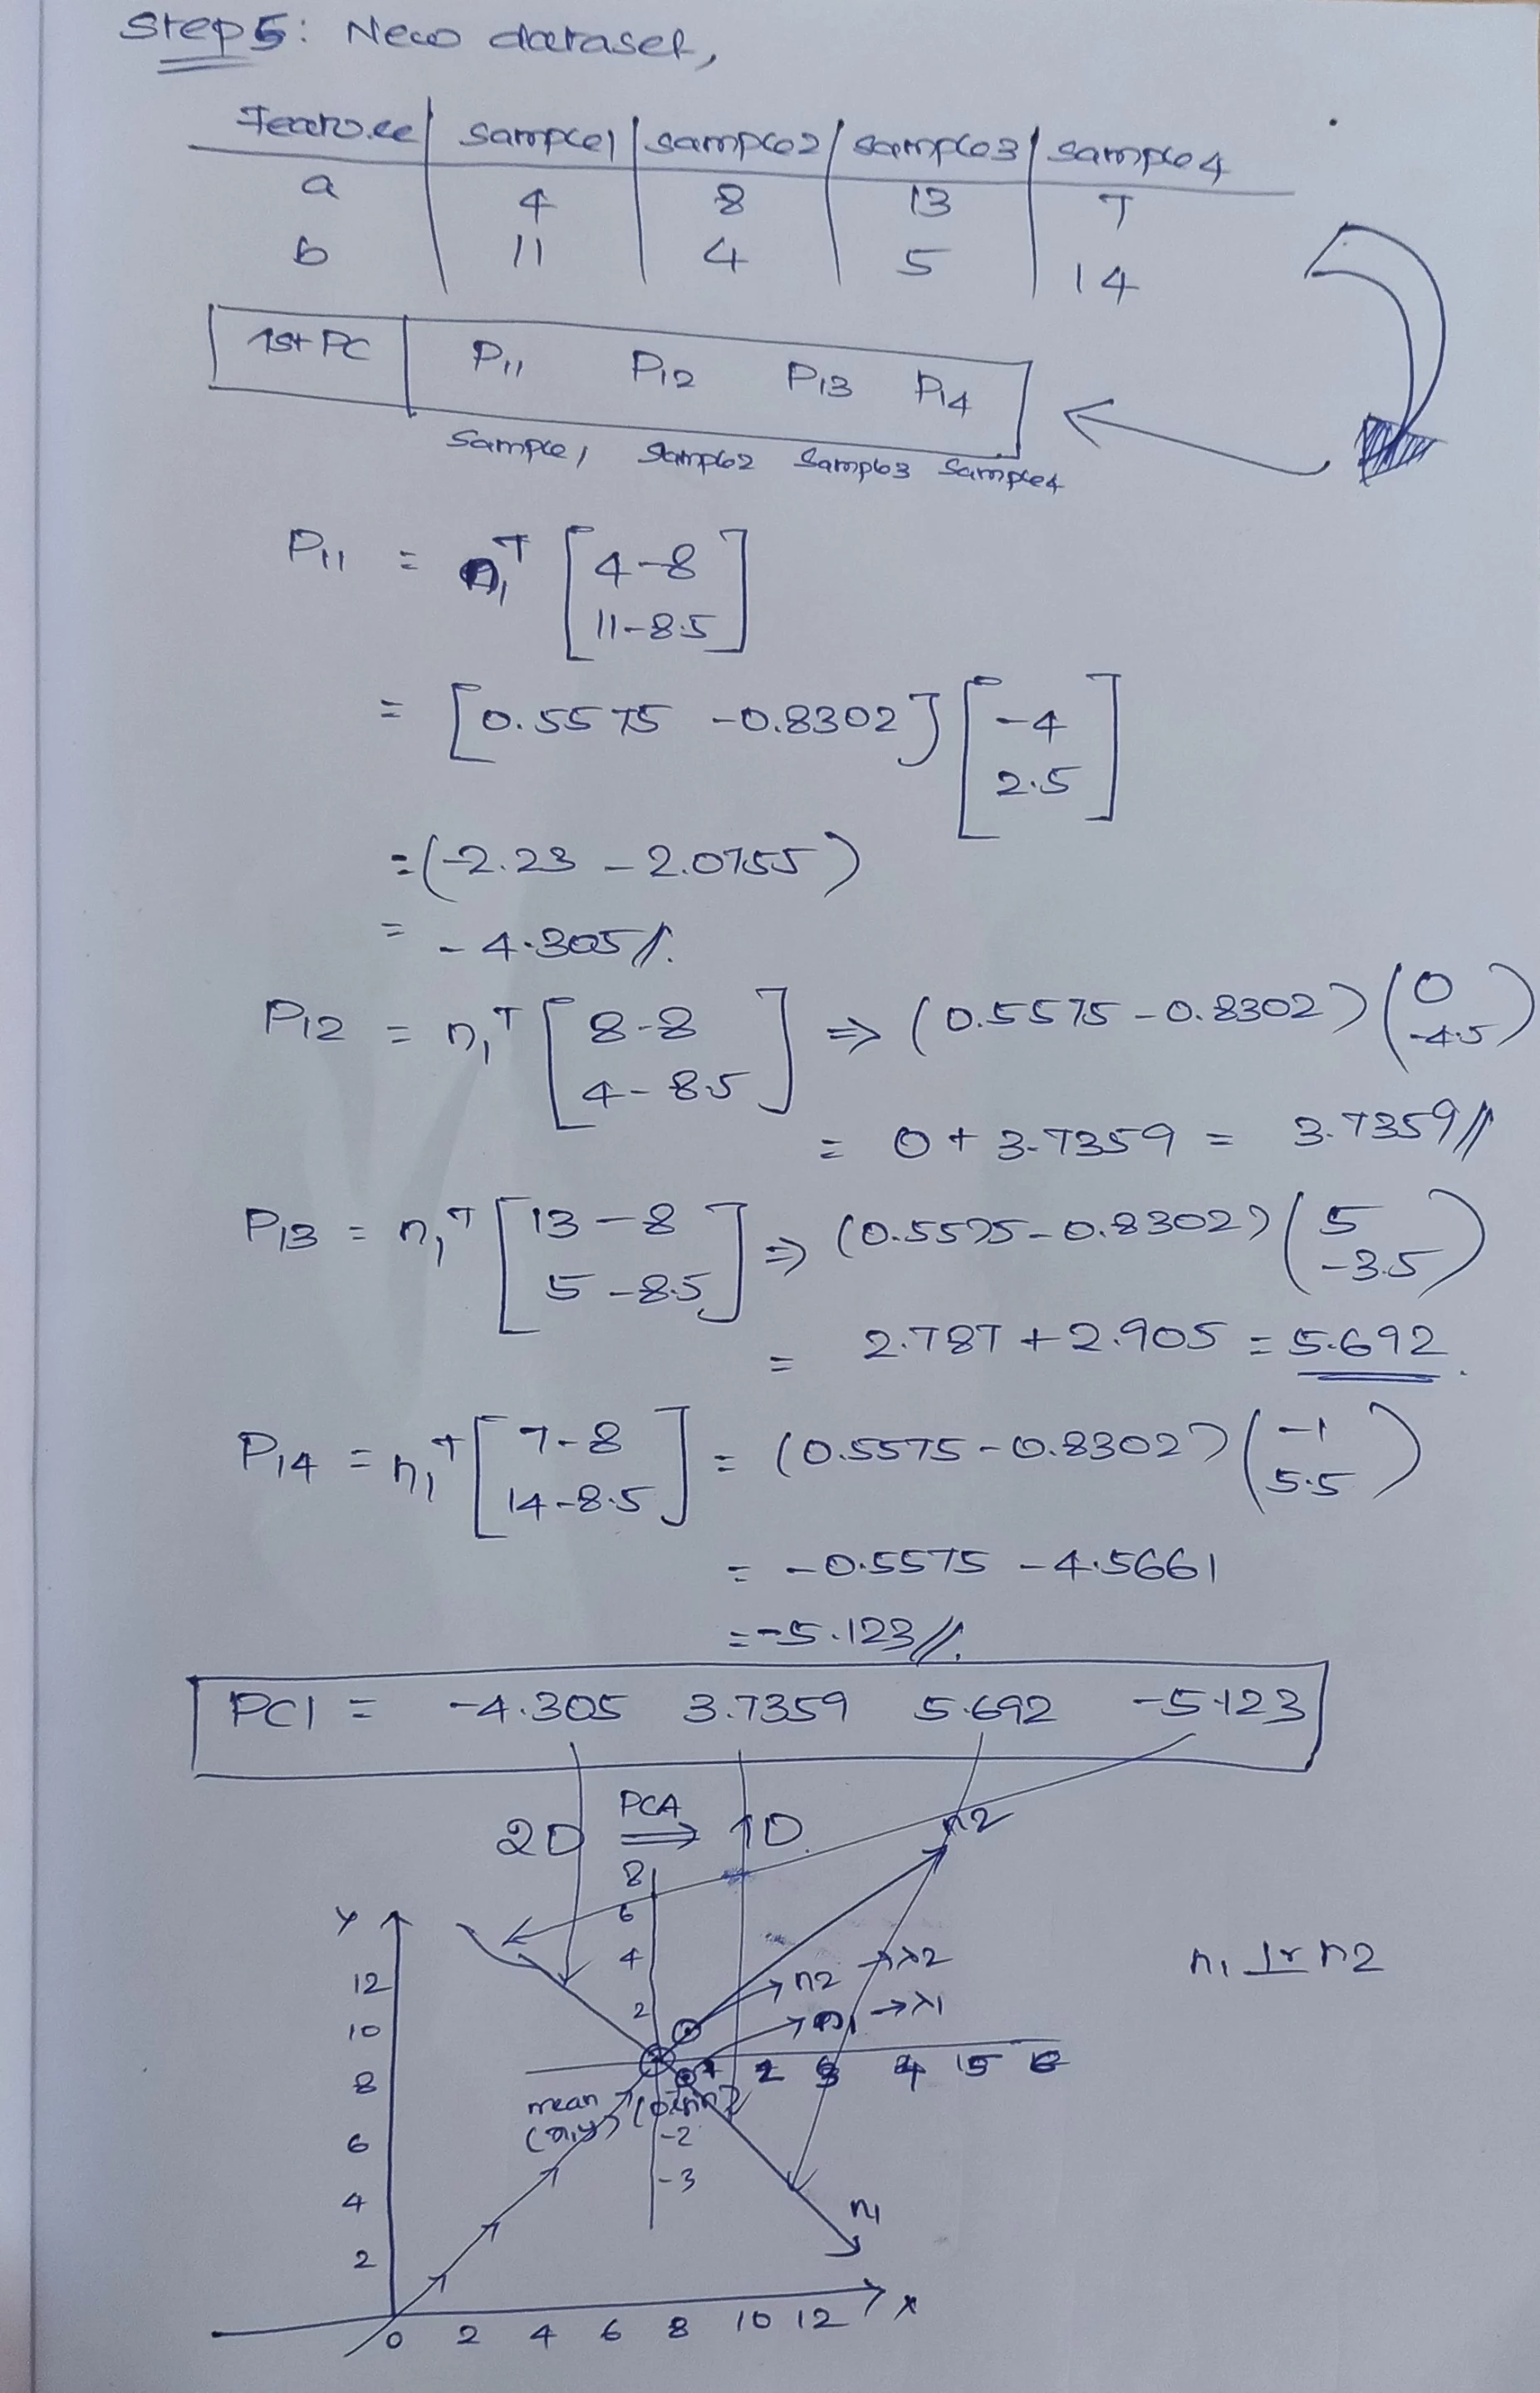 Step 5: New dataset,
Feature sample1 sample2 sample3 sample4
a 4 8 13 7
b 11 4 5 14
1st PC P11 P12 P13 P14
Sample1 Sample2 Sample3 Sample4
P11 = n1^T [4-8
11-8.5]
= [0.5575 -0.8302] [-4
2.5]
= (-2.23 - 2.0755)
= -4.305//.
P12 = n1^T [8-8
4-8.5] ⇒ (0.5575 -0.8302) (0
-4.5)
= 0 + 3.7359 = 3.7359//
P13 = n1^T [13-8
5-8.5] ⇒ (0.5575 -0.8302) (5
-3.5)
= 2.787 + 2.905 = 5.692.
P14 = n1^T [7-8
14-8.5] = (0.5575 -0.8302) (-1
5.5)
= -0.5575 - 4.5661
= -5.123//.
PC1 = -4.305 3.7359 5.692 -5.123
2D PCA ⇒ 1D
n2
8
y 6
12 4 n2 → λ2
10 2 n1 → λ1
n1 ⊥r n2
8 1 2 3 4 5 6
mean
6 -2
4 -3
n1
2
0 2 4 6 8 10 12 x